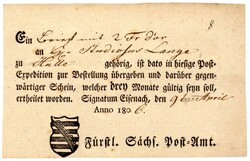 8
Ein Brief mit 2 Fr dor
an Hr. Studiosus Lange
zu Halle gehörig, ist dato in hiesige Post-
Expedition zur Bestellung übergeben und darüber gegen-
wärtiger Schein, welcher drey Monate gültig seyn soll,
ertheilet worden. Signatum Eisenach, den 9ten April
Anno 1806.
Fürstl. Sächs. Post-Amt.